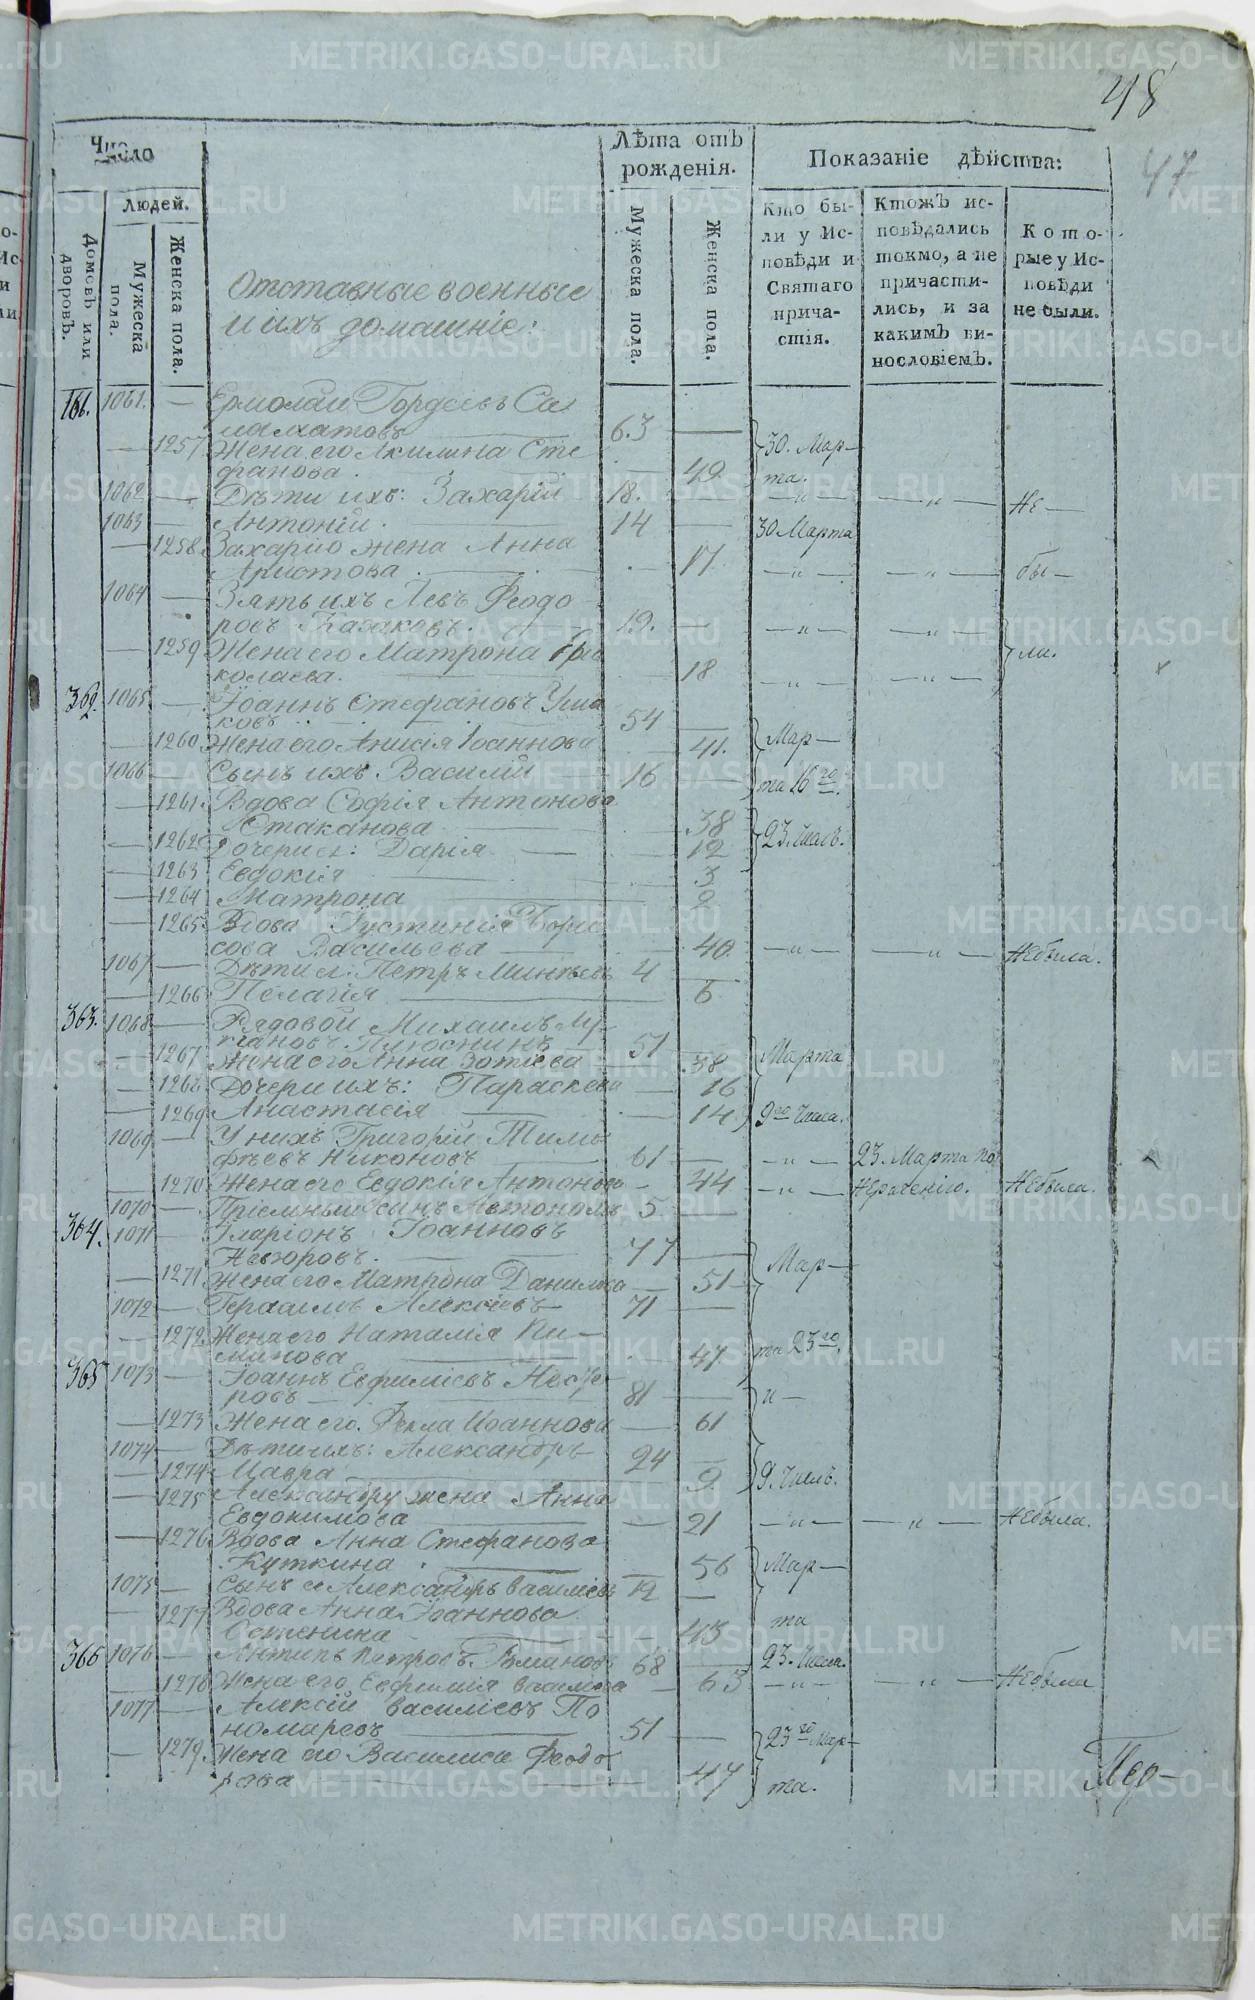 48
47
Число
Лѣта отъ рожденія.
Показаніе дѣйства:
Людей.
Домовъ или дворовъ.
Мужеска пола.
Женска пола.
Отставные военные
и ихъ домашніе:
Мужеска пола.
Женска пола.
Кто бы-
ли у Ис-
повѣди и
Святаго
прича-
стія.
Ктожъ ис-
повѣдались
токмо, а не
причасти-
лись, и за
какимъ ви-
нословіемъ.
Кото-
рые у Ис-
повѣди
не были.
1061. — Ермолай Гордеевъ Са
ламатовъ 63 —
— 1257 Жена его Акилина Сте
фанова. — 49. 30. Мар—та.
1062 — Дѣти ихъ: Захарій 18. — „ — — „ — Не—
1063 — Антоній. 14 — 30 Марта
— 1258 Захарію жена Анна
Аристова. — 17. — „ — — „ — бы—
1064 — Зять ихъ Левъ Феодо
ровъ Казаковъ. 19. — — „ — — „ —
— 1259 Жена его Матрона
колаева. — 18 — „ — — „ — ли.
362. 1065 — Іоаннъ Стефановъ Уша
ковъ 54 —
— 1260 Жена его Анисія Іоаннова — 41. Мар—
1066 — Сынъ ихъ Василій 16 — та 16го.
— 1261. Вдова Софія Антонова
Стаканова — 38
— 1262 Дочери ея: Дарія — 12 23. числ.
— 1263 Евдокія — 3
— 1264 Матрона — 2
— 1265 Вдова Іустинія Бори
сова Васильева — 40. — „ — — „ — Не была.
1067 — Дѣти ея: Петръ 4
— 1266 Пелагія — 6
363. 1068 — Рядовой Михаилъ
Плюснинъ 51 —
— 1267 Жена его Анна Зотіева — 38 Марта
— 1268 Дочери ихъ: Параскева — 16
— 1269 Анастасія — 14 9го числа.
1069 — У нихъ Григорій Тимо
фѣевъ Никоновъ 61 — — „ — 23. Марта по
— 1270 Жена его Евдокія Антонова — 44 — „ — нераченію. Не была.
1070 — Пріемный сынъ Автономъ 5 —
364. 1071 — Іларіонъ Іоанновъ
77 — Мар—
— 1271 Жена его Матрона Данилова — 51
1072 — Герасимъ Алексіевъ 71 —
— 1272 Жена его Наталія Пи—
минова — 47. та 23го.
365 1073 — Іоаннъ Евфиміевъ Несте
ровъ 81 — „ —
— 1273 Жена его Фекла Иоаннова — 61
1074 — Дѣти ихъ: Александръ 24 —
— 1274 Мавра — 9. 9. числ.
— 1275 Александру жена Анна
Евдокимова — 21 — „ — — „ — Не была.
— 1276 Вдова Анна Стефанова
Куткина. — 56 Мар—
1075 — Сынъ ее Александръ Василіевъ 12 —
— 1277 Вдова Анна Іоаннова
— 43 та
366 1076 — Антипъ Петровъ 68 — 23. числа.
— 1278 Жена его Евфимія Васильева — 63 — „ — — „ — Не была
1077 — Алексій Василіевъ По
номаревъ 51 — 23го Мар—
— 1279 Жена его Василиса Феодо
рова — 47 та.
Пер—
METRIKI.GASO-URAL.RU